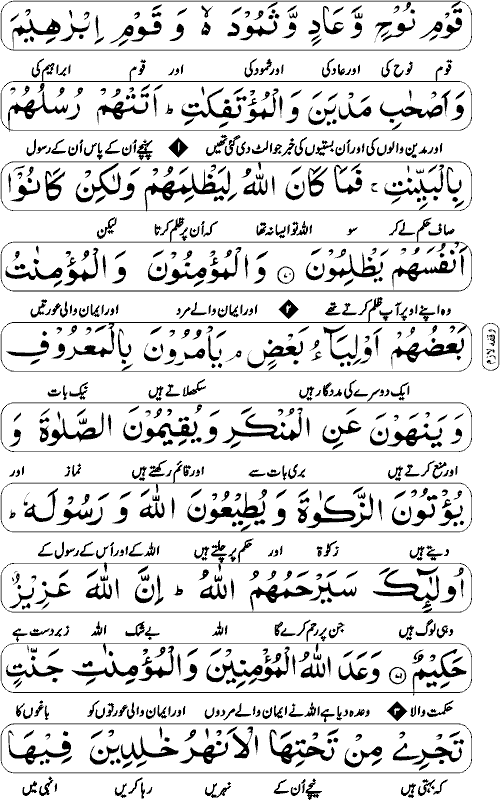 قَوْمِ نُوْحٍ وَّعَادٍ وَّثَمُوْدَ ۙ وَقَوْمِ اِبْرٰهِيْمَ
قوم نوح کی اور عاد کی اور ثمود کی اور قوم ابراہیم کی
وَاَصْحٰبِ مَدْيَنَ وَالْمُؤْتَفِكٰتِ ؕ اَتَتْهُمْ رُسُلُهُمْ
اور مدین والوں کی اور اُن بستیوں کی خبر جو الٹ دی گئی تھیں ۱ پہنچے اُن کے پاس اُن کے رسول
بِالْبَيِّنٰتِ ۚ فَمَا كَانَ اللّٰهُ لِيَظْلِمَهُمْ وَلٰكِنْ كَانُوْۤا
صاف حکم لے کر سو اللہ تو ایسا نہ تھا کہ اُن پر ظلم کرتا لیکن
اَنْفُسَهُمْ يَظْلِمُوْنَ ۷۰ وَالْمُؤْمِنُوْنَ وَالْمُؤْمِنٰتُ
وہ اپنے اوپر آپ ظلم کرتے تھے ۲ اور ایمان والے مرد اور ایمان والی عورتیں
بَعْضُهُمْ اَوْلِيَآءُ بَعْضٍ ۘ يَاْمُرُوْنَ بِالْمَعْرُوْفِ
وقفہ لازم
ایک دوسرے کی مددگار ہیں سکھلاتے ہیں نیک بات
وَيَنْهَوْنَ عَنِ الْمُنْكَرِ وَيُقِيْمُوْنَ الصَّلٰوةَ وَ
اور منع کرتے ہیں بری بات سے اور قائم رکھتے ہیں نماز اور
يُؤْتُوْنَ الزَّكٰوةَ وَيُطِيْعُوْنَ اللّٰهَ وَرَسُوْلَهٗ ؕ
دیتے ہیں زکوٰۃ اور حکم پر چلتے ہیں اللہ کے اور اُس کے رسول کے
اُولٰٓئِكَ سَيَرْحَمُهُمُ اللّٰهُ ؕ اِنَّ اللّٰهَ عَزِيْزٌ
وہی لوگ ہیں جن پر رحم کرے گا اللہ بے شک اللہ زبردست ہے
حَكِيْمٌ ۷۱ وَعَدَ اللّٰهُ الْمُؤْمِنِيْنَ وَالْمُؤْمِنٰتِ جَنّٰتٍ
حکمت والا ۳ وعدہ دیا ہے اللہ نے ایمان والے مردوں اور ایمان والی عورتوں کو باغوں کا
تَجْرِيْ مِنْ تَحْتِهَا الْاَنْهٰرُ خٰلِدِيْنَ فِيْهَا
کہ بہتی ہیں نیچے اُن کے نہریں رہا کریں انہی میں